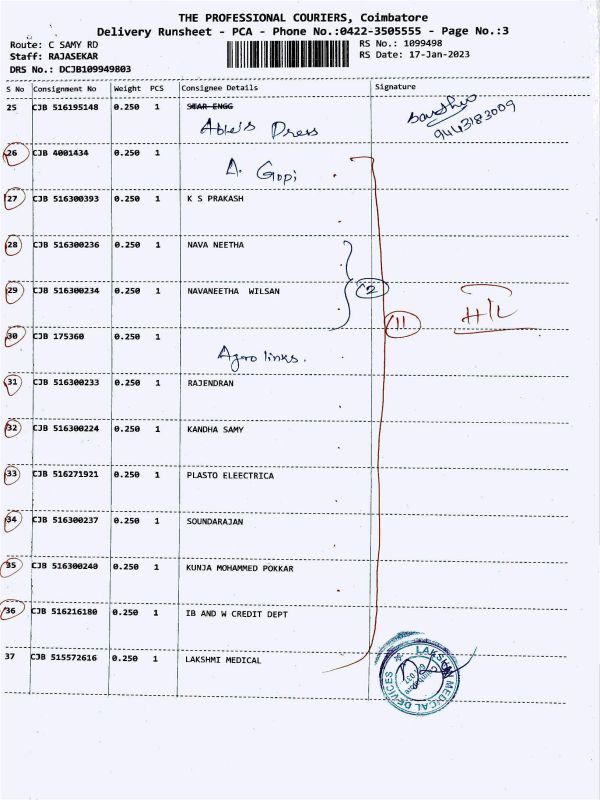 THE PROFESSIONAL COURIERS, Coimbatore
Delivery Runsheet - PCA - Phone No.:0422-3505555 - Page No.:3
Route: C SAMY RD RS No.: 1099498
Staff: RAJASEKAR RS Date: 17-Jan-2023
DRS No.: DCJB109949803
S No Consignment No Weight PCS Consignee Details Signature
25 CJB 516195148 0.250 1 STAR ENGG
Dress
9443183009
26 CJB 4001434 0.250 1
A. Gopi
27 CJB 516300393 0.250 1 K S PRAKASH
28 CJB 516300236 0.250 1 NAVA NEETHA
29 CJB 516300234 0.250 1 NAVANEETHA WILSAN
2
11
H/L
30 CJB 175360 0.250 1
Agro links.
31 CJB 516300233 0.250 1 RAJENDRAN
32 CJB 516300224 0.250 1 KANDHA SAMY
33 CJB 516271921 0.250 1 PLASTO ELEECTRICA
34 CJB 516300237 0.250 1 SOUNDARAJAN
35 CJB 516300240 0.250 1 KUNJA MOHAMMED POKKAR
36 CJB 516216180 0.250 1 IB AND W CREDIT DEPT
37 CJB 515572616 0.250 1 LAKSHMI MEDICAL
LAKSHMI MEDICAL DEVICES